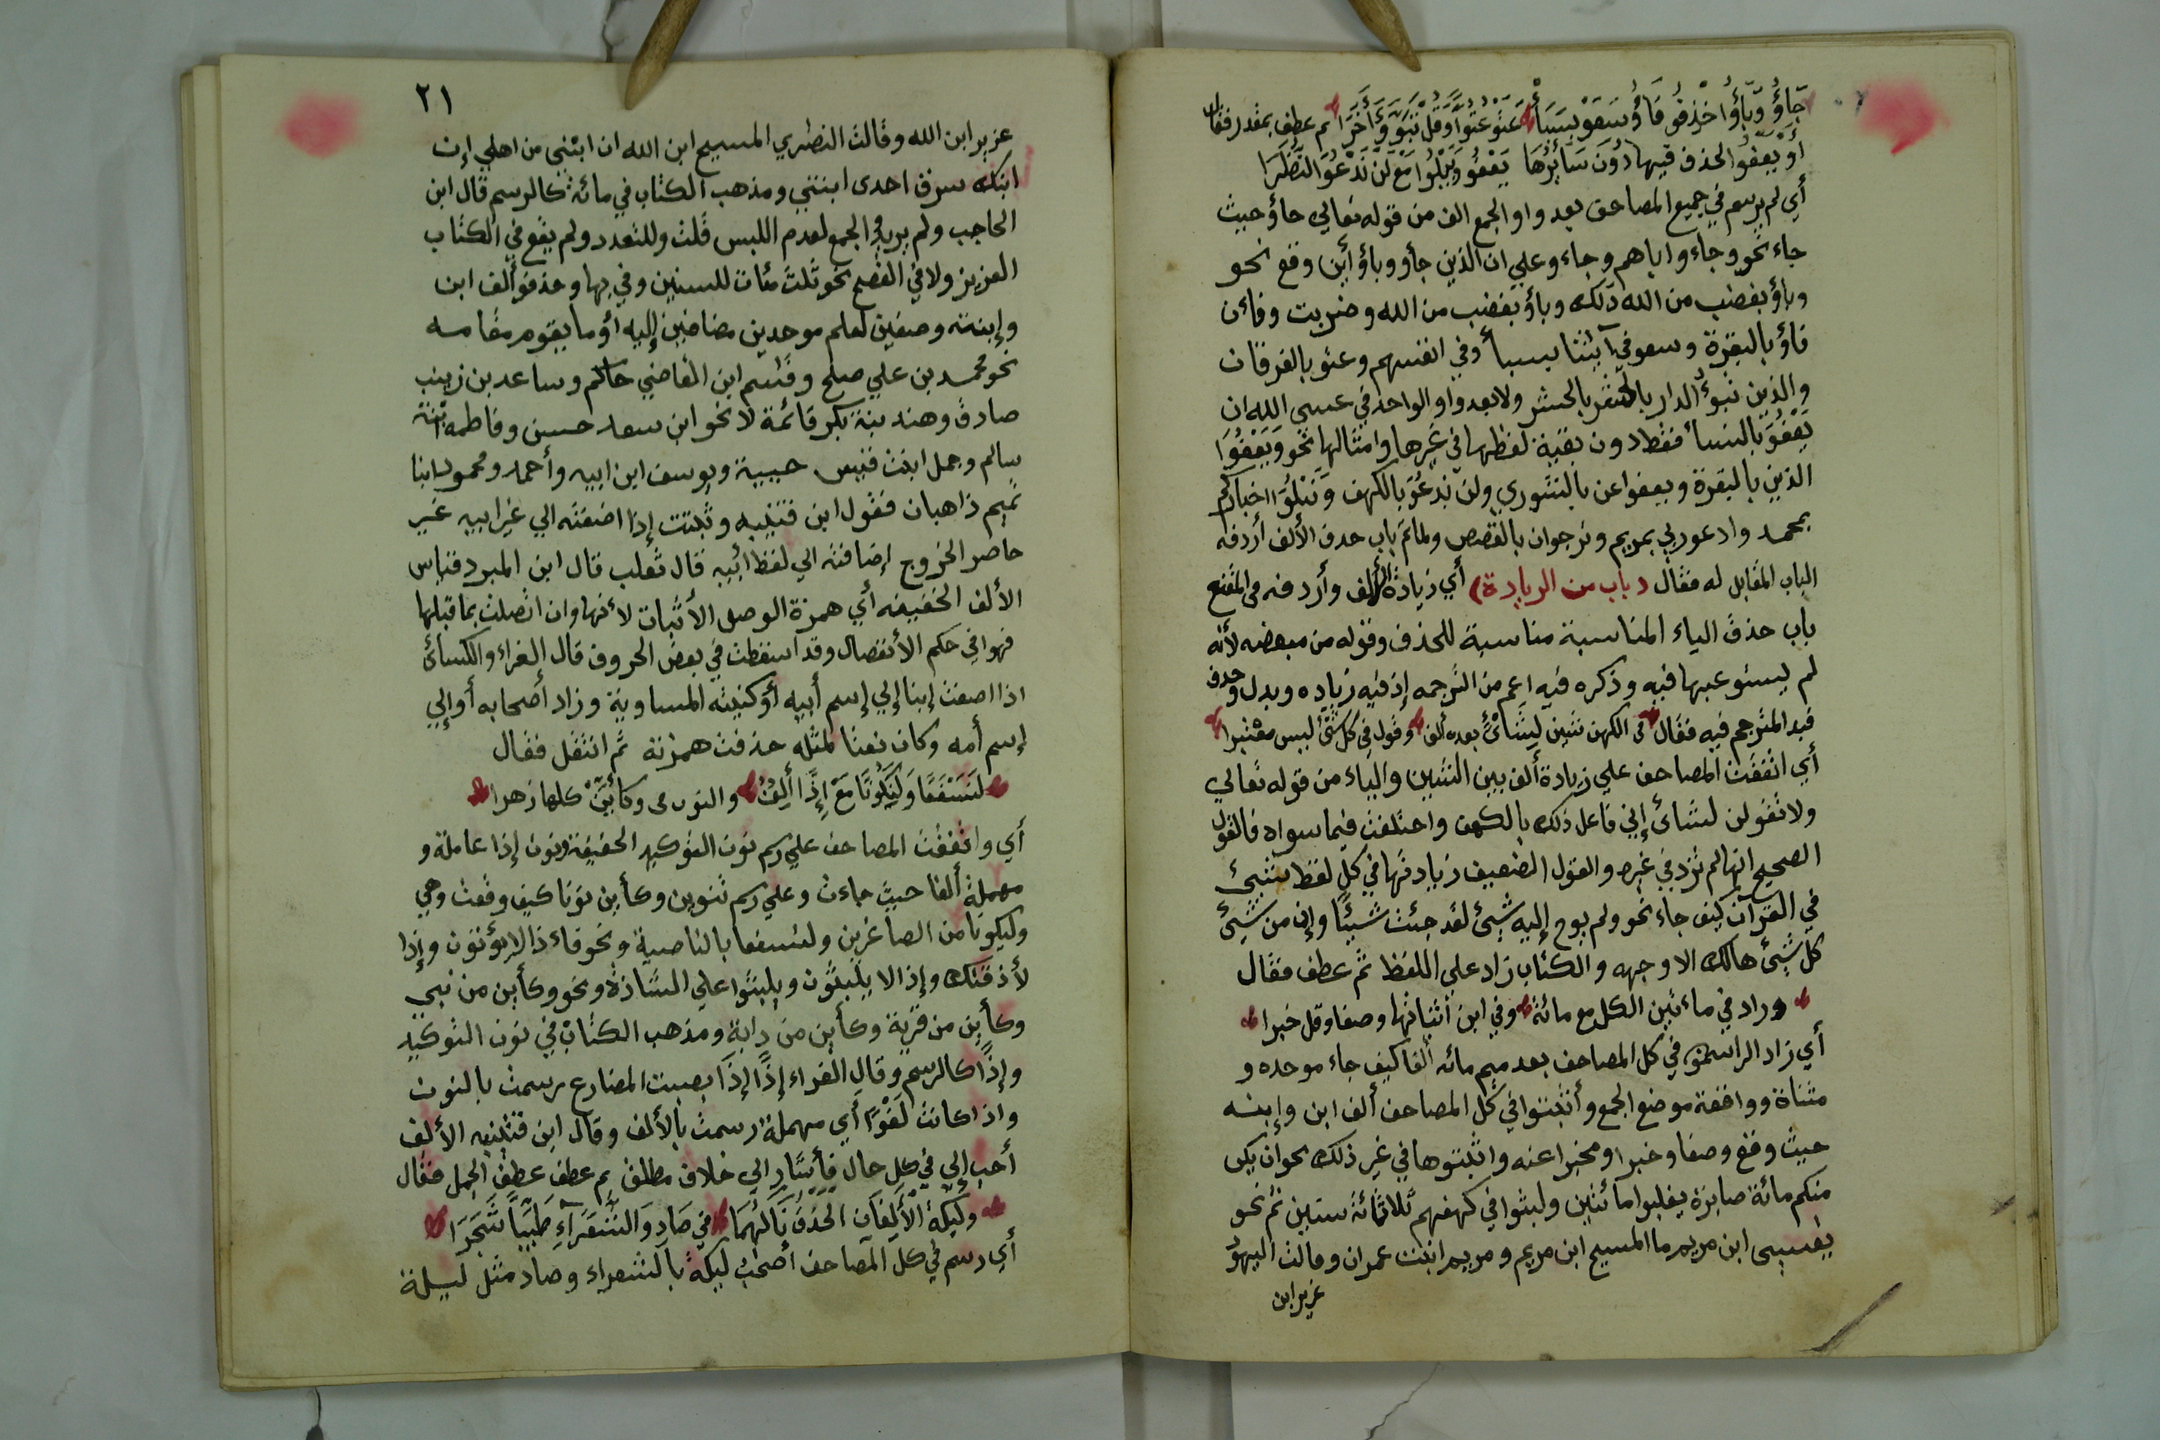 جَاؤُ وَبَاؤُ احْذِفُو فَاؤُ سَعَوْ بِسَبَأْ عَتَوْ عُتُوًّا وَقُلْ تَبَوَّؤُ أُخَرَا ثم عطف بمقدر فقال
أَوْ يَعْفُوَ الحذف فيها دُونَ سَائِرُهَا يَعْفُو وَيَبْلُوا مَعْ لَنْ نَدْعُوَ النُّظَرَا
أي لم يرسم في جميع المصاحف بعد واو الجمع الف من قوله تعالى جاؤ حيث
جاء نحو وجاءو اباهم وجاءو على ان الذين جاؤ وباؤ أين وقع نحو
وباؤ بغضب من الله ذلك وباؤ بغضب من الله وضربت وفاءن
فاؤ بالبقرة وسعو في آيتنا بسبأ وفي انفسهم وعتو بالفرقان
والذين تبوءُ الدار بالحشر ولا بعد واو الواحد في عسى الله ان
يَعْفُوَ بالنسأ فقط دون بقية لفظها في غيرها وامثالها نحو وَيَعْفُوَا
الذين بالبقرة ويعفوا عن بالشوري ولن نَدْعُوَ بالكهف وَنَبْلُوَا اخباركم
بمحمد وادعو ربي بمريم وترجوان بالقصص ولما تم باب حذف الألف أردفه
الباب المقابل له فقال (باب من الزيادة) أي زيادة الألف وأردفه في المقنع
باب حذف الياء المناسبة مناسبة للحذف وقوله من مبعضه لأنه
لم يستوعبها فيه وذكره فيه اعم من الترجمه إذ فيه زياده وبدل وحذف
قيد المترجم فيه فقال في الكهف شين لِشَائْءٍ بعده ألف وقول في كل شئ ليس معتبرا
أي اتفقت المصاحف علي زيادة ألف بين الشين والياء من قوله تعالي
ولا تقولن لشائ إني فاعل ذلك بالكهف واختلفت فيما سواه فالقول
الصحيح انها لم تزد في غيره والقول الضعيف زيادتها في كل لفظ شيئ
في القرآن كيف جاء نحو ولم يوح إليه شئ لقد جئت شيئًا وإن من شئ
كل شئ هالك الا وجهه والكتاب زاد علي اللفظ ثم عطف فقال
وزاد في ماءتين الكل مع مائة وفي ابن اثباتها وصفا وقل خبرا
أي زاد الراسمون في كل المصاحف بعد ميم مائه ألفا كيف جاء موحده و
مثناة وواقعة موضع الجمع وأثبتوا في كل المصاحف ألف ابن وإبنه
حيث وقع وصفا وخبرا ومخبرا عنه واثبتوها في غير ذلك نحو ان يكن
منكم مائة صابرة يغلبوا مائتين ولبثوا في كهفهم ثلاثمائة سنين ثم نحو
يعيسى ابن مريم ما المسيح ابن مريم ومريم ابنت عمران وقالت اليهود
عزير ابن
٢١
عزير ابن الله وقالت النصري المسيح ابن الله ان ابني من اهلي إن
ابنك سرق احدى ابنتي ومذهب الكتاب في مائة كالرسم قال ابن
الحاجب ولم يريدو الجمع لعدم اللبس قلت وللتعدد ولم يقع في الكتاب
العزيز ولا في الفصيح نحو ثلث مئات للسنين وفيها وحذفو ألف ابن
وإبنته وصفين لعلم موحدين مضافين إليه أو ما يقوم مقامه
نحو محمد بن علي صلح وقسم ابن القاضي حاكم وساعد بن زينب
صادق وهند بنة بكر قائمة لا نحو ابن سعد حسن وفاطمه ابنة
سالم وجمل ابنت قيس حبيبة ويوسف ابن ابيه وأحمد ومحمود ابنا
تميم ذاهبان فقول ابن قتيبه وثبتت إذا اضفته الي غير ابيه غير
حاصر الخروج إضافته الي لفظ ابيه قال ثعلب قال ابن المبرد قياس
الألف الخفيفه أي همزة الوصل الأثبات لأنها وان اتصلت بما قبلها
فهوا في حكم الأنفصال وقد اسقطت في بعض الحروف قال الفراء والكسائ
اذا اضفت إبنا إلي إسم أبيه أو كنيته المساوية وزاد أصحابه أو إلي
إسم أمه وكان نعتا لمثله حذفت همزته ثم انتقل فقال
لَنَسْفَعًا وَلَيَكُونًا مَعْ إِذًا أَلِفٌ والنون في وكأيّن كلها زهرا
أي واتفقت المصاحف علي رسم نون التوكيد الخفيفة ونون إذا عاملة و
مهملة ألفا حيث جاءت وعلي رسم تنوين وكأين نونا كيف وقعت وهي
وليكونا من الصاغرين ولنسفعا بالناصية ونحو فاءذا لا يؤتون وإذا
لأذقنك وإذا لا يلبثون ويلبثوا علي الشاذة ونحو وكأين من نبي
وكأين من قرية وكأين من دابة ومذهب الكتاب في نون التوكيد
وإذًا كالرسم وقال الفراء إذًا إذَا نصبت المضارع رسمت بالنون
واذا كانت لَغْوًا أي مهملة رسمت بالألف وقال ابن قتيبه الألف
أحب إلي في كل حال فأشار الي خلاف مطلق ثم عطف عطف الجمل فقال
وَلَيْكَةُ الْأَلِفَانِ الحَذْفُ نَالَهُمَا في صَادِ وَالشُّعَرَاءِ طَيِّبًا شَجَرَا
أي رسم في كل المصاحف أصحب ليكة بالشعراء وصاد مثل ليلة